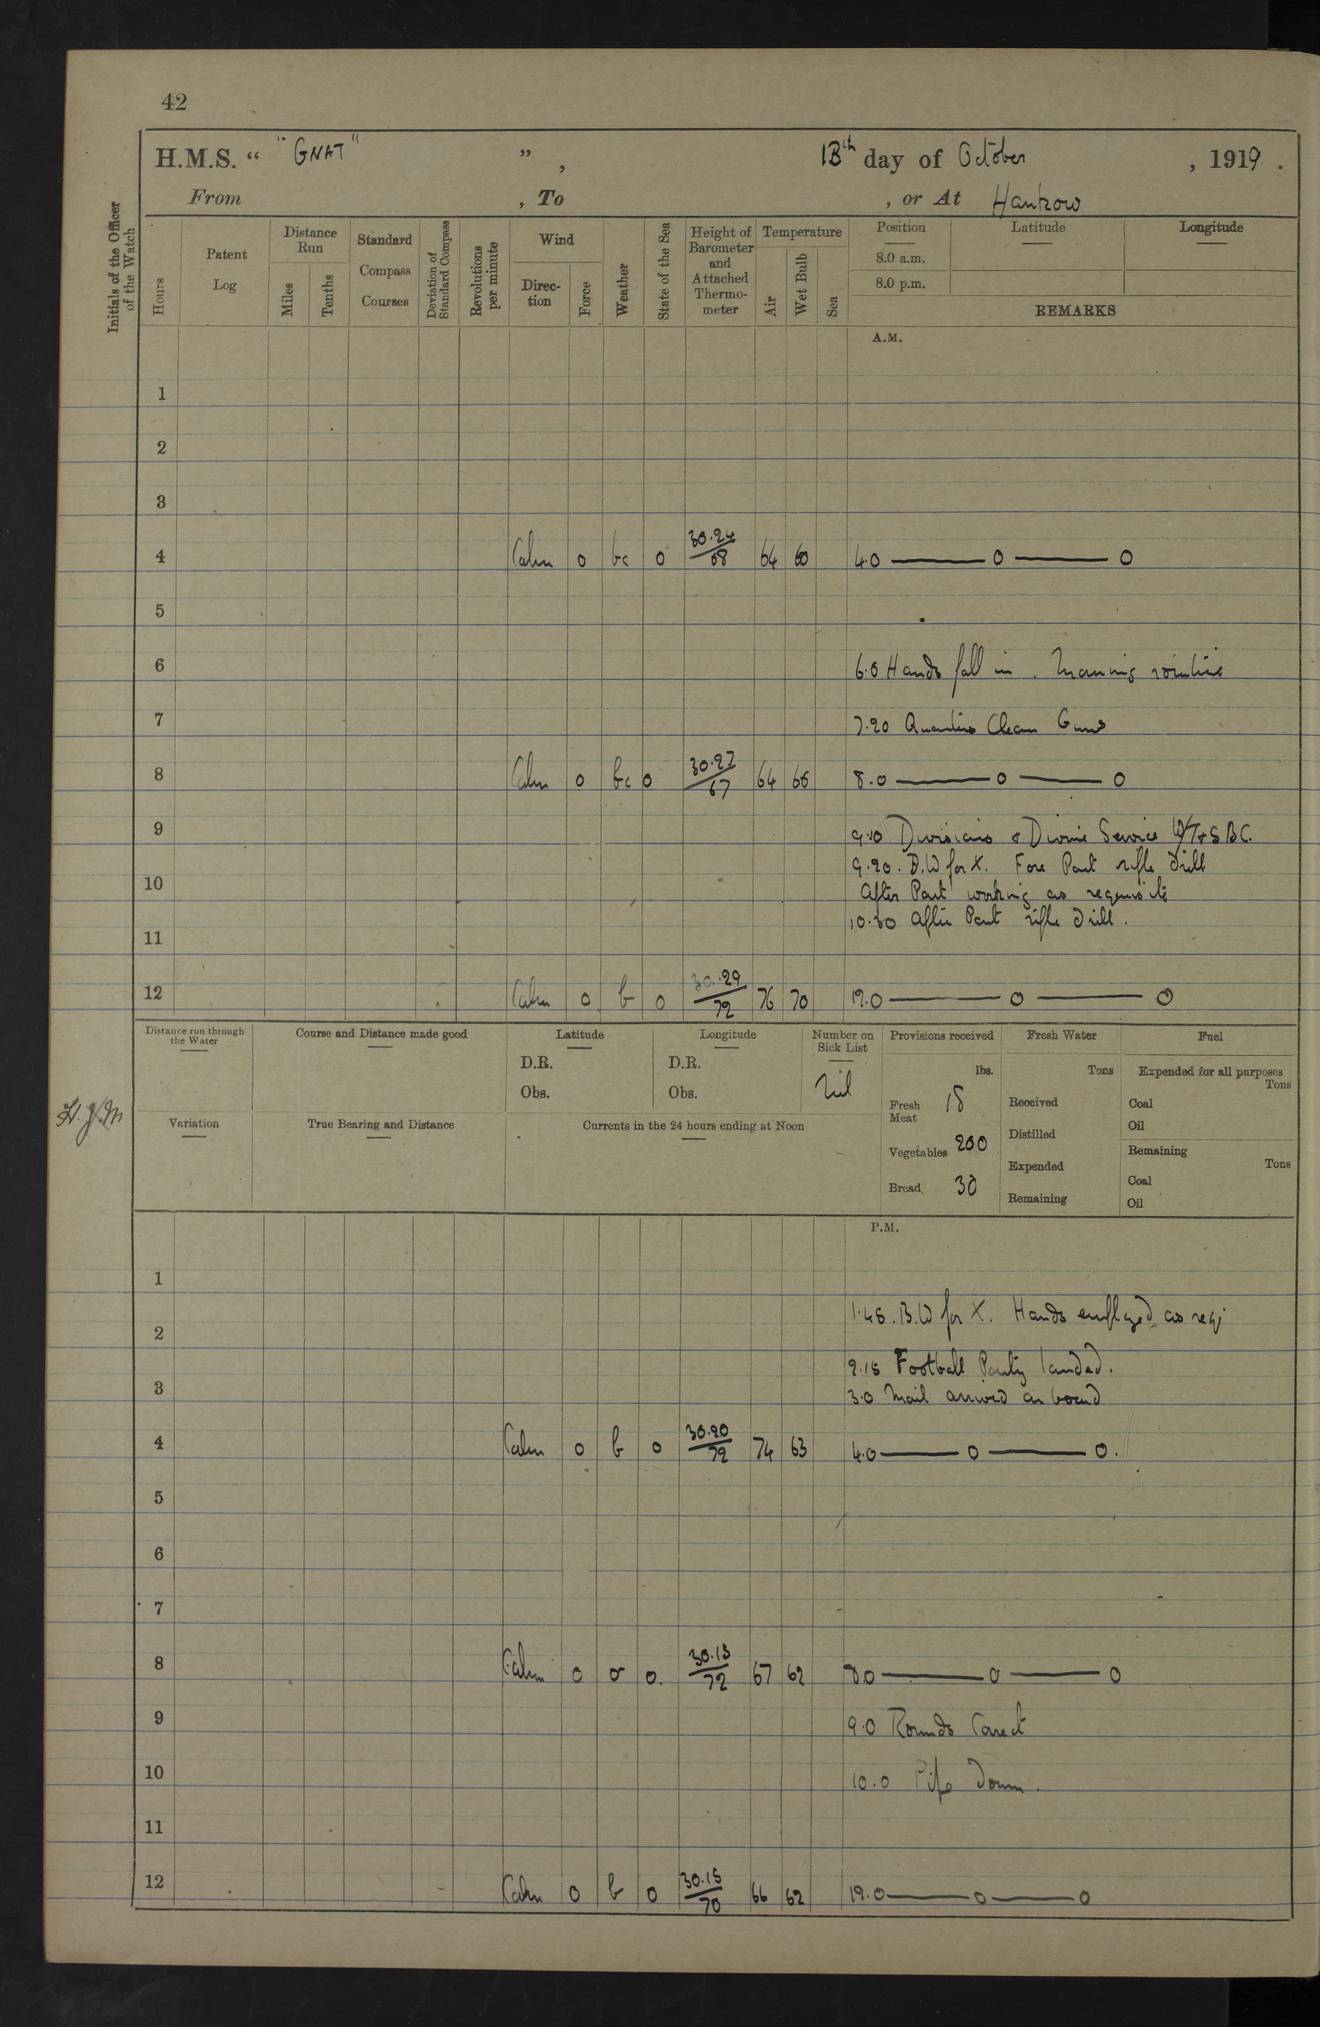 42
H.M.S. “ "GNAT" ” , 13th day of October , 1919 .
From , To , or At Hankow
Initials of the Officer of the Watch
Hours
Patent Log
Distance Run
Miles
Tenths
Standard Compass Courses
Deviation of Standard Compass
Revolutions per minute
Wind
Direction
Force
Weather
State of the Sea
Height of Barometer and Attached Thermometer
Temperature
Air
Wet Bulb
Sea
Position
8.0 a.m.
8.0 p.m.
Latitude
Longitude
REMARKS
A.M.
1
2
3
4 Calm 0 bc 0 30.24/68 64 60 4.0 —— 0 —— 0
5
6 6.0 Hands fall in. Morning routine
7 7.20 Quarters Clean Guns
8 Calm 0 bc 0 30.27/67 64 8.0 —— 0 —— 0
9 9.10 Divisions & Divine Service W/T & S.B.C.
9.20. B.W for X. Fore Part rifle drill
10 After Part working as requisite
10.30 After Part rifle drill.
11
12 Calm 0 b 0 30.29/72 76 70 12.0 —— 0 —— 0
Distance run through the Water
Course and Distance made good
Latitude
D.R.
Obs.
Longitude
D.R.
Obs.
Number on Sick List
Nil
Provisions received
lbs.
Fresh Meat 18
Vegetables 200
Bread 30
Fresh Water
Tons
Received
Distilled
Expended
Remaining
Fuel
Expended for all purposes
Tons
Coal
Oil
Remaining
Tons
Coal
Oil
Variation
True Bearing and Distance
Currents in the 24 hours ending at Noon
P.M.
1
1.45. B.W for X. Hands employed as req
2
2.15 Football Party landed.
3 3.0 Mail arrived on board
4 Calm 0 b 0 30.20/72 74 63 4.0 —— 0 —— 0.
5
6
7
8 Calm 0 o 0. 30.13/72 67 62 8.0 —— 0 —— 0
9 9.0 Rounds Correct
10 10.0 Pipe Down.
11
12 Calm 0 b 0 30.15/70 66 62 12.0 —— 0 —— 0